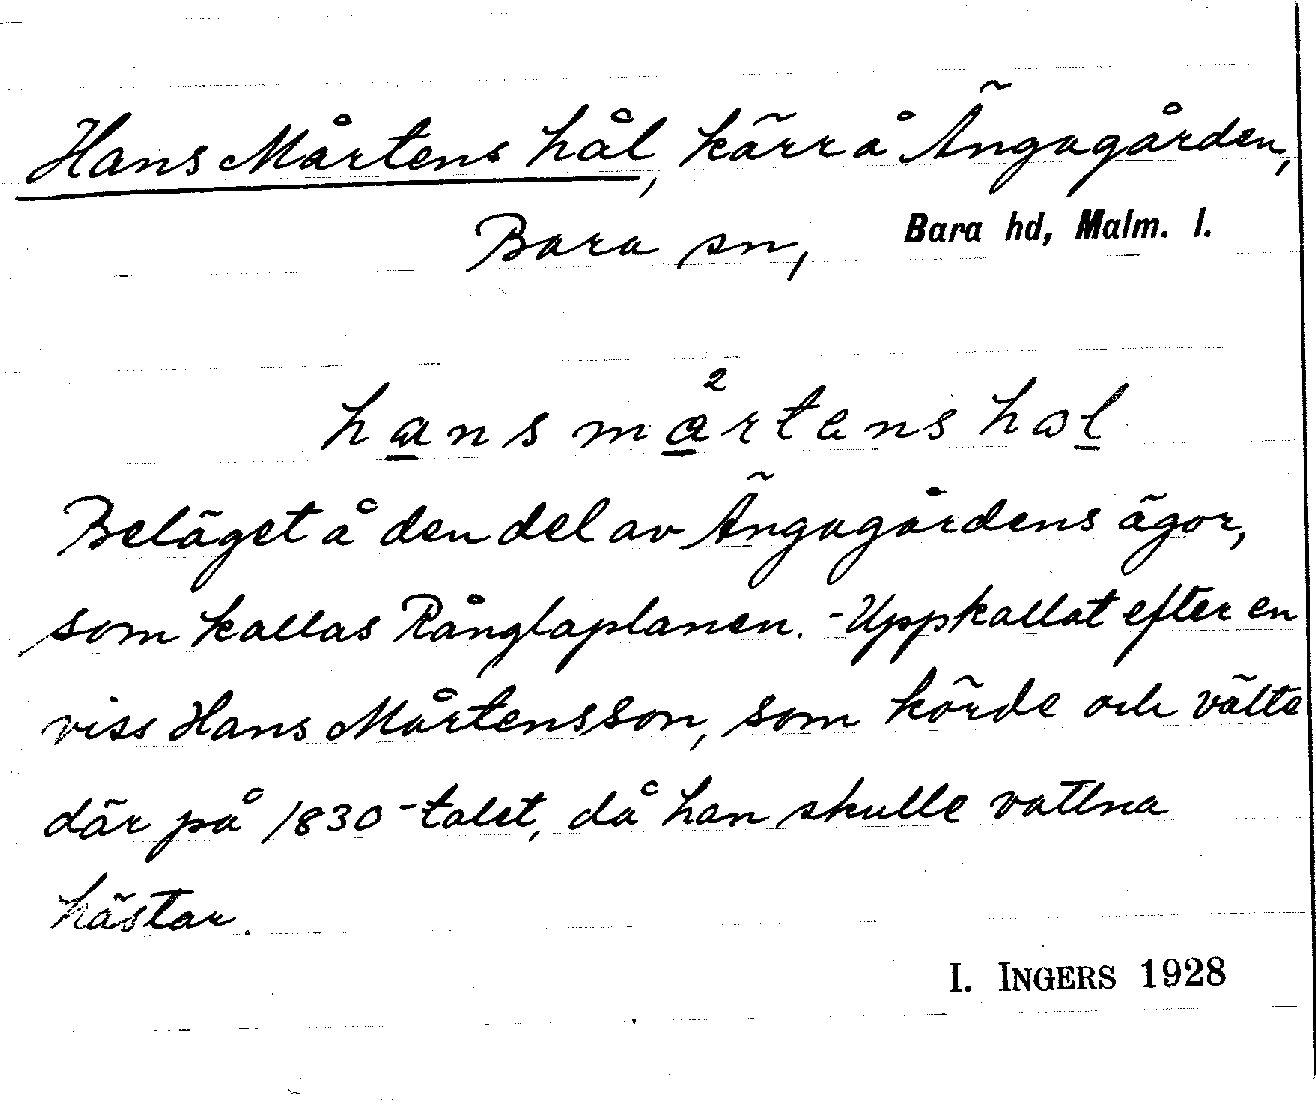 Hans Mårtens hål, kärr å Ängagården,
Bara sn, Bara hd, Malm. l.
hans mårtens hål
Beläget å den del av Ängagårdens ägor,
som kallas Rånglaplanen. - Uppkallat efter en
viss Hans Mårtensson, som körde och välte
där på 1830-talet, då han skulle vattna
hästar.
I. INGERS 1928